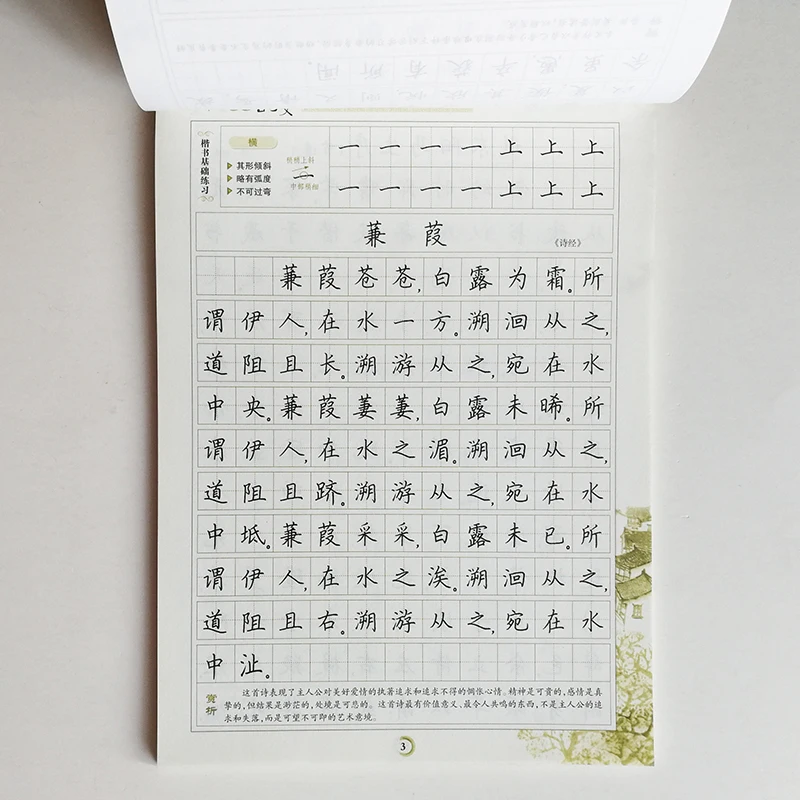 楷书基础练习
横
其形倾斜
略有弧度
不可过弯
一 一 一 一 上 上 上
一 一 一 一 上 上 上
蒹 葭
《诗经》
蒹葭苍苍,白露为霜。所
谓伊人,在水一方。溯洄从之,
道阻且长。溯游从之,宛在水
中央。蒹葭萋萋,白露未晞。所
谓伊人,在水之湄。溯洄从之,
道阻且跻。溯游从之,宛在水
中坻。蒹葭采采,白露未已。所
谓伊人,在水之涘。溯洄从之,
道阻且右。溯游从之,宛在水
中沚。
赏析
这首诗表现了主人公对美好爱情的执著追求和追求不得的惆怅心情。精神是可贵的,感情是真
挚的,但结果是渺茫的,处境是可悲的。这首诗最有价值意义、最令人共鸣的东西,不是主人公的追
求和失落,而是可望不可即的艺术意境。
3